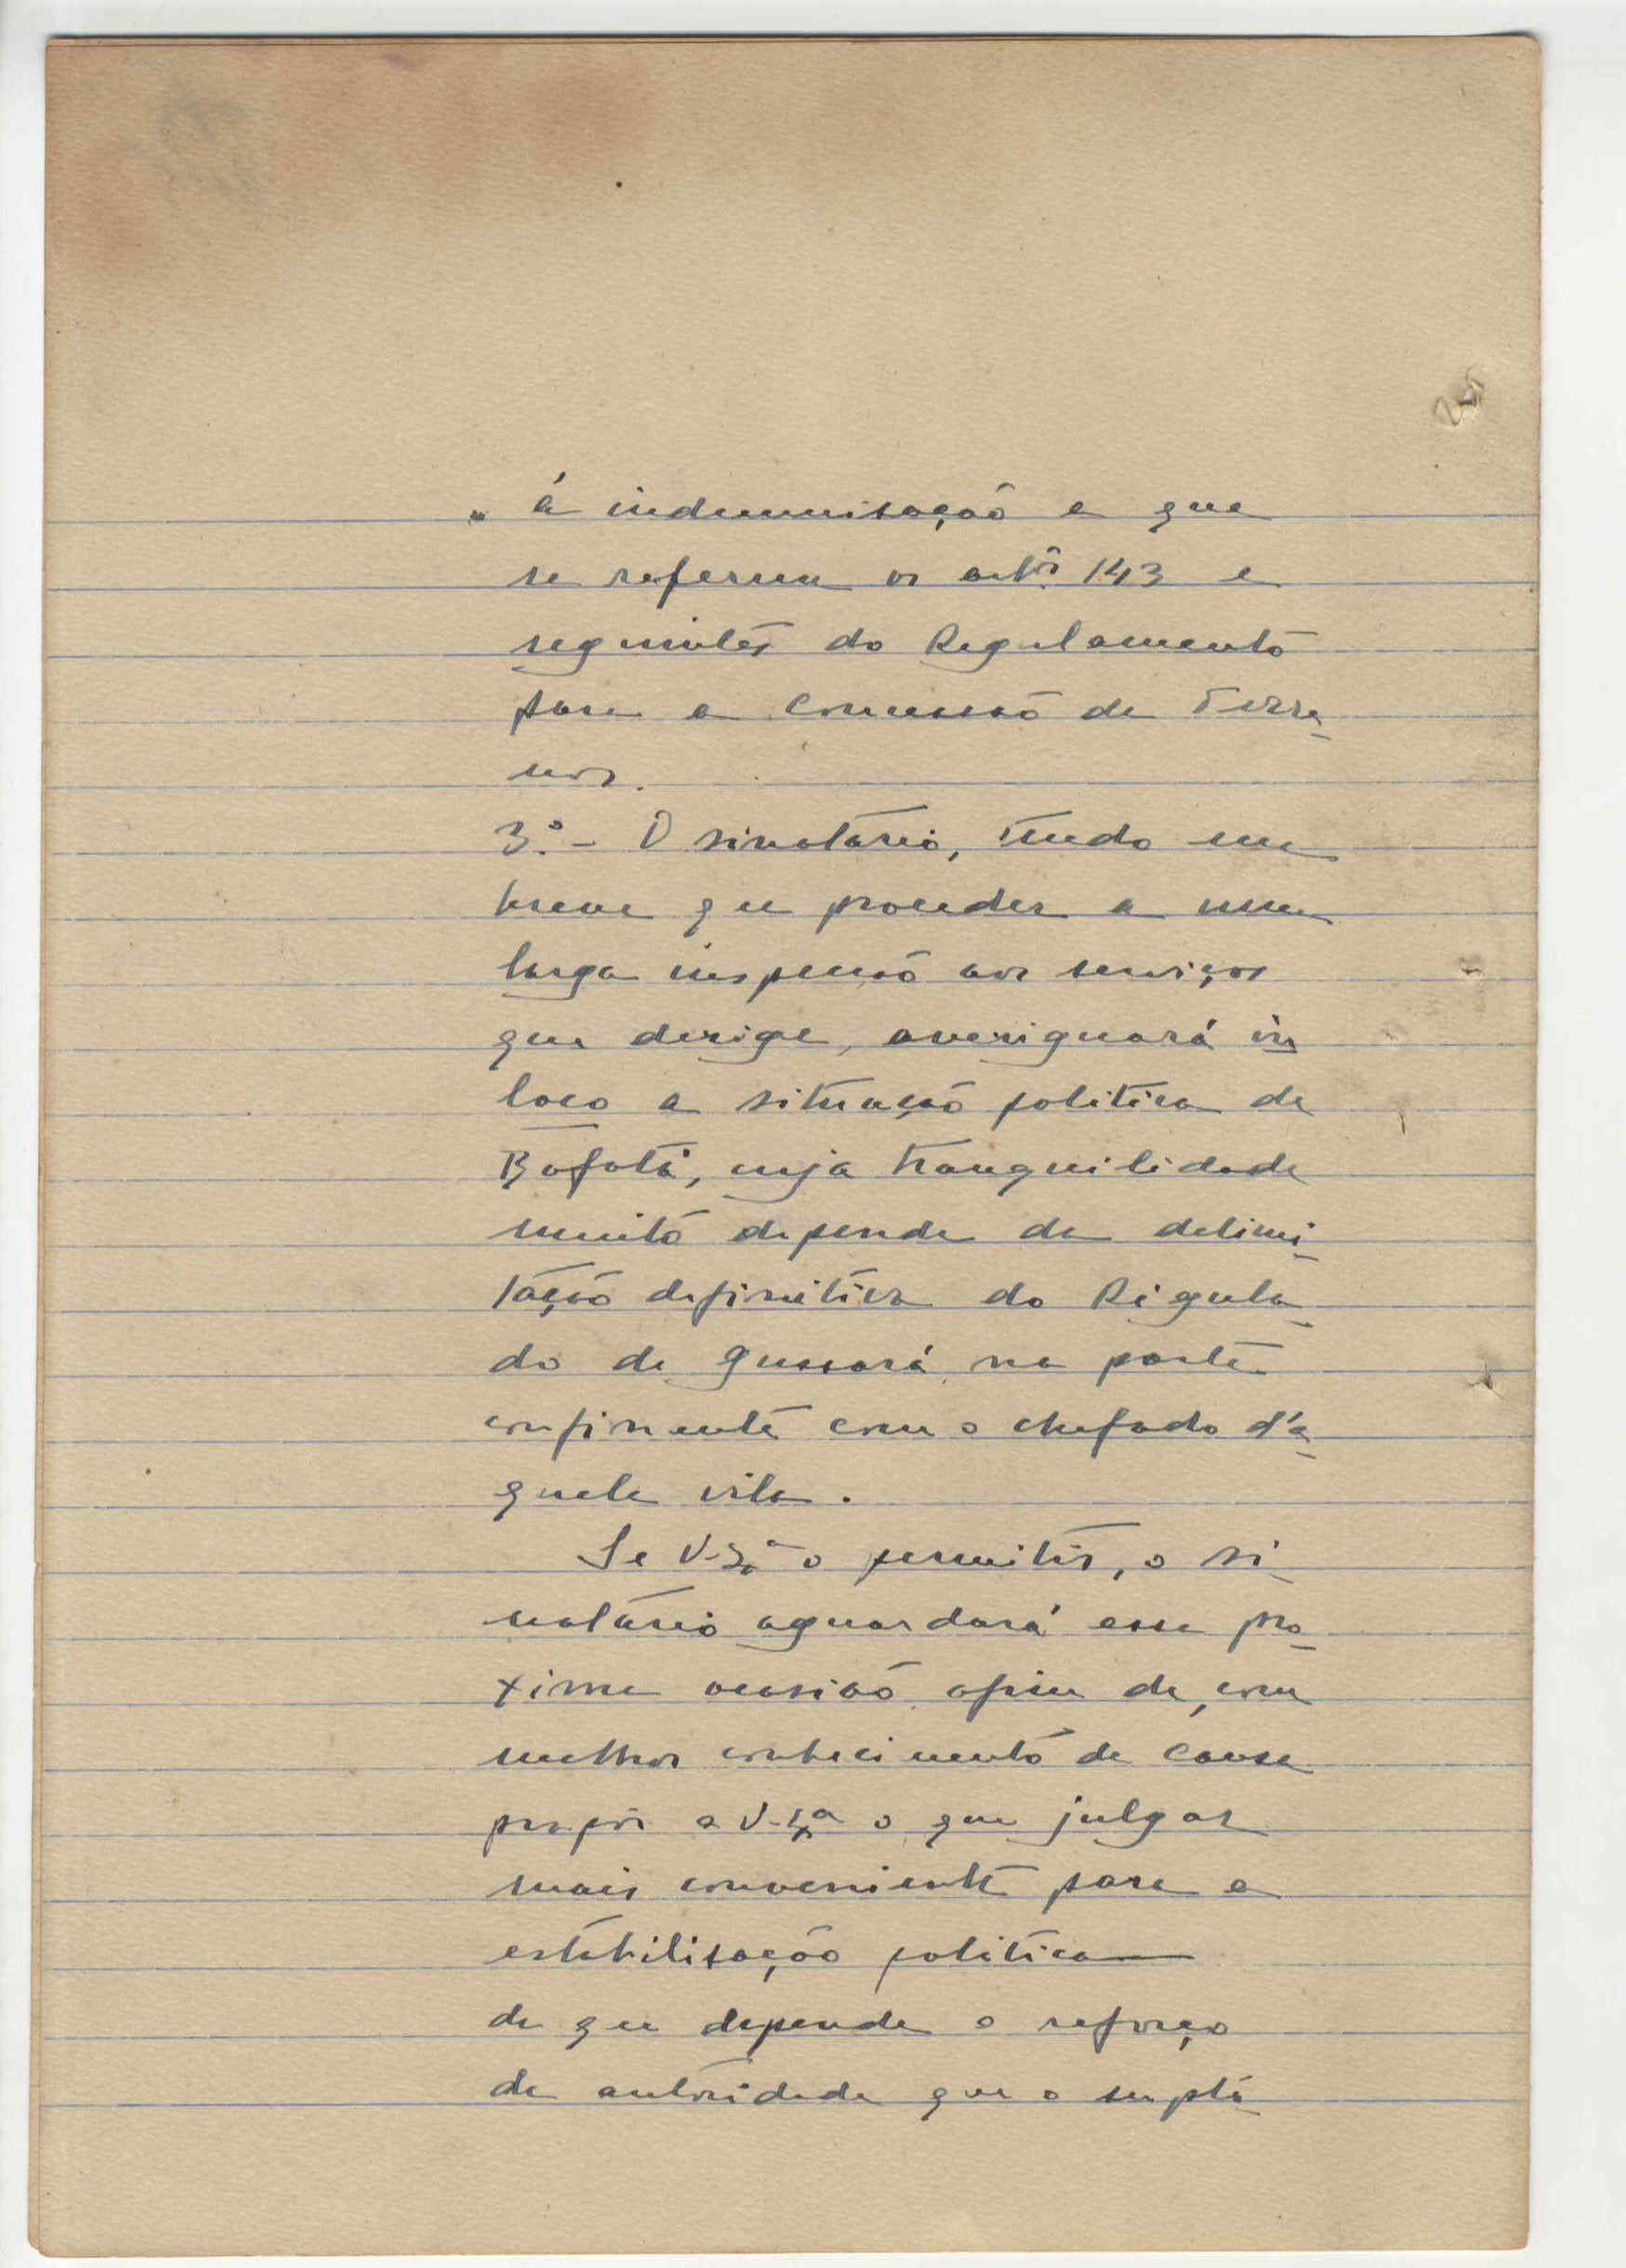 á indemnisação a que
se referem os artos 143 e
seguintes do Regulamento
para a Concessão de Terre-
nos.
3.º - O sinatário, tendo em
breve que proceder a uma
larga inspeção aos serviços
que derige, averiguará in
loco a situação politica de
Bafatá, cuja tranquilidade
muito depende da delimi-
tação definitiva do Regula-
do de Gussará na parte
confinante com o chefado d'a-
quela vila.
Se V. Ex.ª o permitir, o si-
natário aguardará essa pro-
xima ocasião afim de, com
melhor conhecimento de causa
propôr a V. Ex.ª o que julgar
mais conveniente para a
estabilisação politica
de que depende o reforço
de autoridade que o